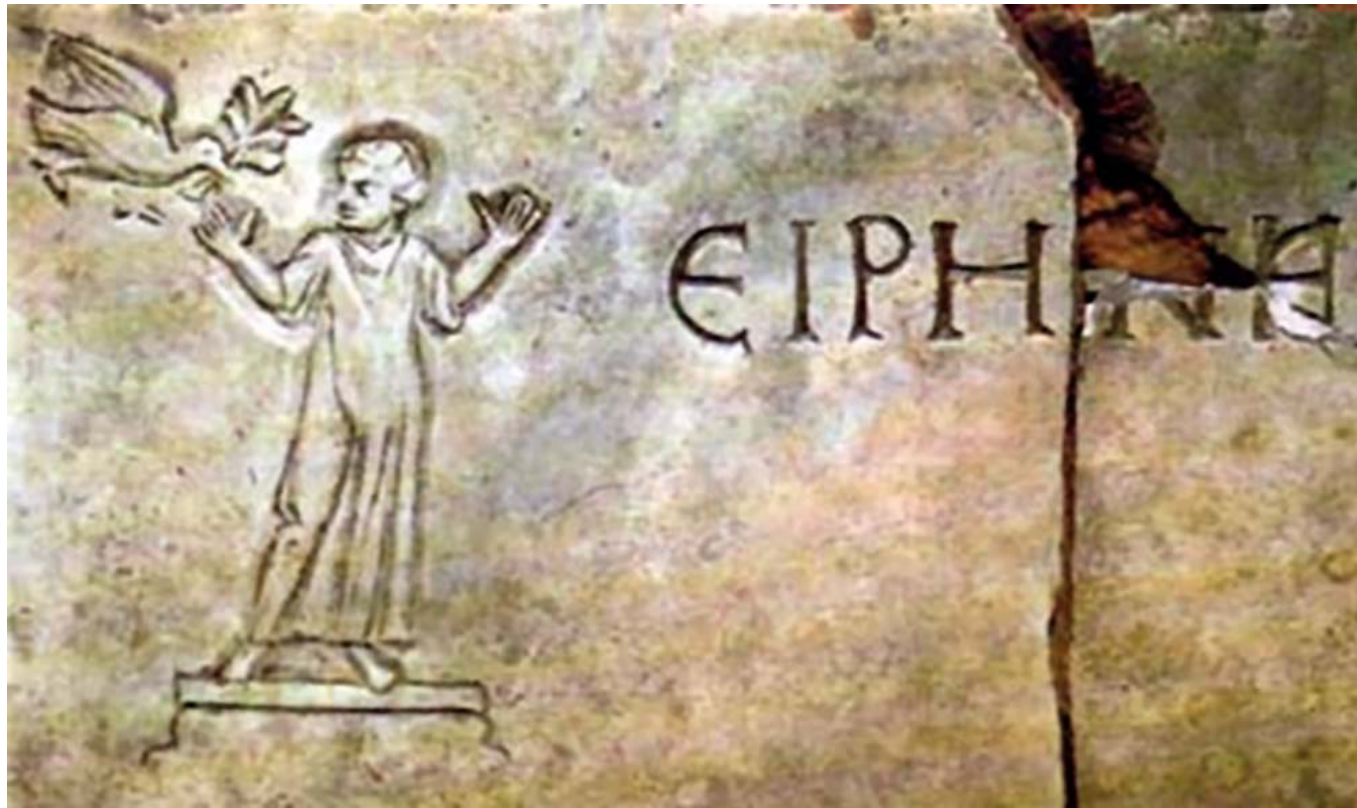 ΕΙΡΗΝΗ